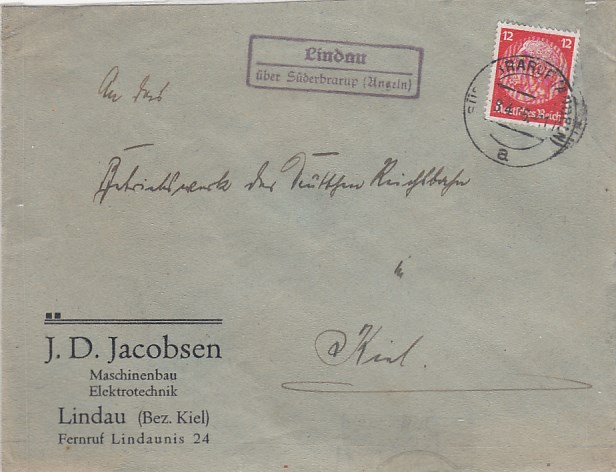 Lindau
über Süderbrarup (Angeln)
12 12
Deutsches Reich
a
An das
Betriebswerk der Deutschen Reichsbahn
in
Kiel.
J. D. Jacobsen
Maschinenbau
Elektrotechnik
Lindau (Bez. Kiel)
Fernruf Lindaunis 24